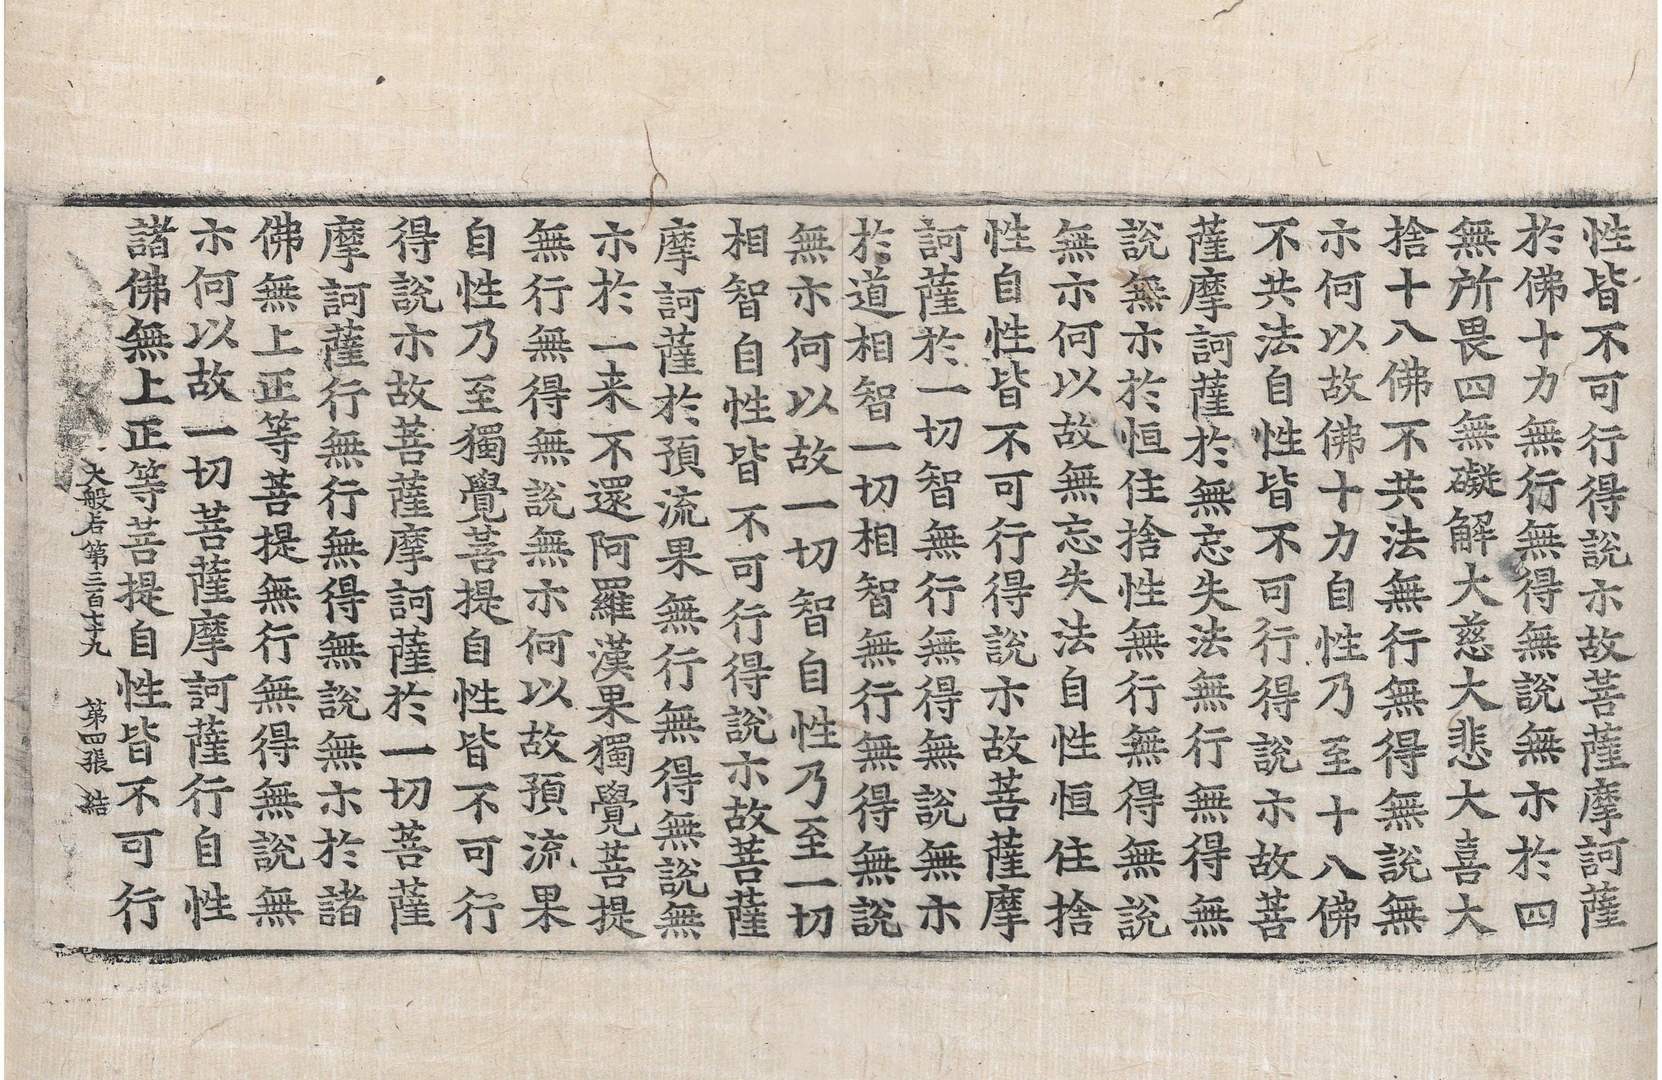 性皆不可行得說示故菩薩摩訶薩
於佛十力無行無得無說無示於四
無所畏四無礙解大慈大悲大喜大
捨十八佛不共法無行無得無說無
示何以故佛十力自性乃至十八佛
不共法自性皆不可行得說示故菩
薩摩訶薩於無忘失法無行無得無
說無示於恒住捨性無行無得無說
無示何以故無忘失法自性恒住捨
性自性皆不可行得說示故菩薩摩
訶薩於一切智無行無得無說無示
於道相智一切相智無行無得無說
無示何以故一切智自性乃至一切
相智自性皆不可行得說示故菩薩
摩訶薩於預流果無行無得無說無
示於一来不還阿羅漢果獨覺菩提
無行無得無說無示何以故預流果
自性乃至獨覺菩提自性皆不可行
得說示故菩薩摩訶薩於一切菩薩
摩訶薩行無行無得無說無示於諸
佛無上正等菩提無行無得無說無
示何以故一切菩薩摩訶薩行自性
諸佛無上正等菩提自性皆不可行
大般若第三百十九 第四張 結